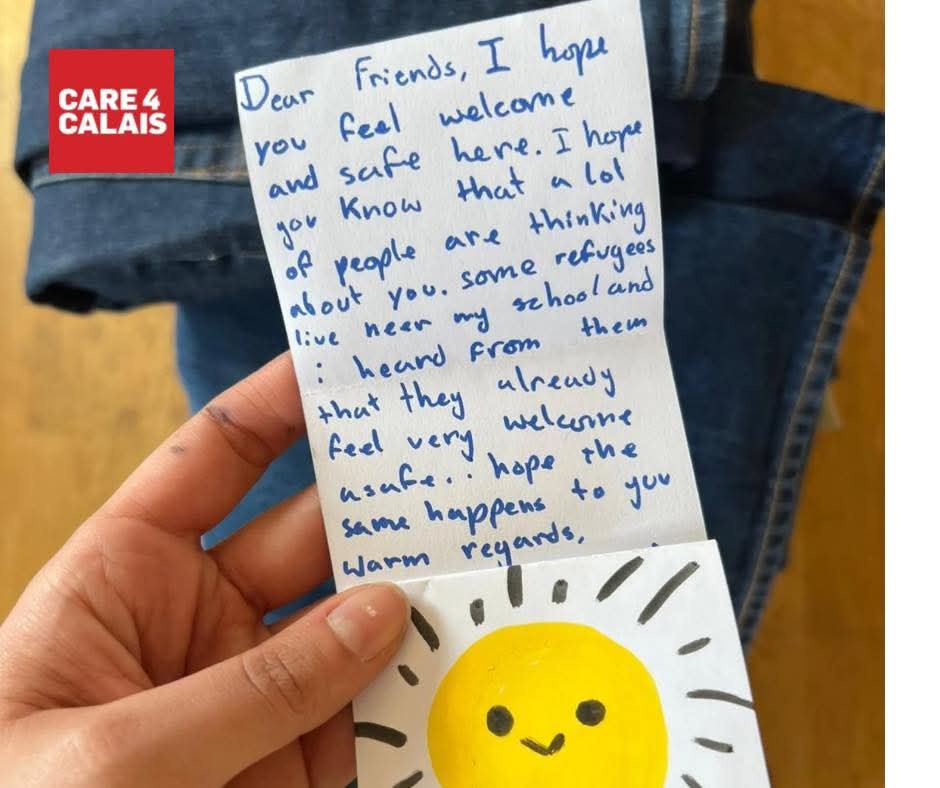 CARE4
CALAIS
Dear Friends, I hope
you feel welcome
and safe here. I hope
you know that a lol
of people are thinking
about you. some refugees
live neer my school and
i heard from them
that they already
feel very welcome
asafe.. hope the
same happens to you
warm regards,